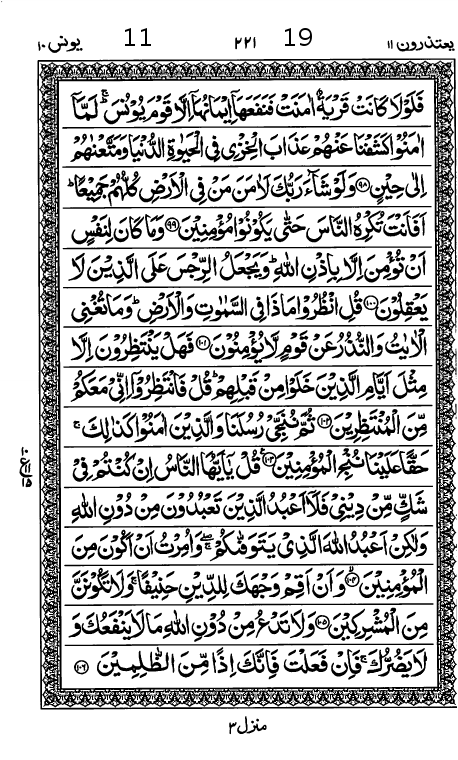 یعتذرون ۱۱ 19 ۲۲۱ 11 یونس ۱۰
فَلَوْلَا كَانَتْ قَرْيَةٌ اٰمَنَتْ فَنَفَعَهَاۤ اِيْمَانُهَاۤ اِلَّا قَوْمَ يُوْنُسَ ؕ لَمَّاۤ
اٰمَنُوْا كَشَفْنَا عَنْهُمْ عَذَابَ الْخِزْيِ فِي الْحَيٰوةِ الدُّنْيَا وَمَتَّعْنٰهُمْ
اِلٰى حِيْنٍ ﴿۹۸﴾ وَلَوْ شَآءَ رَبُّكَ لَاٰمَنَ مَنْ فِي الْاَرْضِ كُلُّهُمْ جَمِيْعًا ؕ
اَفَاَنْتَ تُكْرِهُ النَّاسَ حَتّٰى يَكُوْنُوْا مُؤْمِنِيْنَ ﴿۹۹﴾ وَمَا كَانَ لِنَفْسٍ
اَنْ تُؤْمِنَ اِلَّا بِاِذْنِ اللّٰهِ ؕ وَيَجْعَلُ الرِّجْسَ عَلَى الَّذِيْنَ لَا
يَعْقِلُوْنَ ﴿۱۰۰﴾ قُلِ انْظُرُوْا مَاذَا فِي السَّمٰوٰتِ وَالْاَرْضِ ؕ وَمَا تُغْنِي
الْاٰيٰتُ وَالنُّذُرُ عَنْ قَوْمٍ لَّا يُؤْمِنُوْنَ ﴿۱۰۱﴾ فَهَلْ يَنْتَظِرُوْنَ اِلَّا
مِثْلَ اَيَّامِ الَّذِيْنَ خَلَوْا مِنْ قَبْلِهِمْ ؕ قُلْ فَانْتَظِرُوْۤا اِنِّيْ مَعَكُمْ
مِّنَ الْمُنْتَظِرِيْنَ ﴿۱۰۲﴾ ثُمَّ نُنَجِّيْ رُسُلَنَا وَالَّذِيْنَ اٰمَنُوْا كَذٰلِكَ ۚ
حَقًّا عَلَيْنَا نُنْجِ الْمُؤْمِنِيْنَ ﴿۱۰۳﴾ قُلْ يٰۤاَيُّهَا النَّاسُ اِنْ كُنْتُمْ فِيْ
شَكٍّ مِّنْ دِيْنِيْ فَلَاۤ اَعْبُدُ الَّذِيْنَ تَعْبُدُوْنَ مِنْ دُوْنِ اللّٰهِ
وَلٰكِنْ اَعْبُدُ اللّٰهَ الَّذِيْ يَتَوَفّٰىكُمْ ۖ وَاُمِرْتُ اَنْ اَكُوْنَ مِنَ
الْمُؤْمِنِيْنَ ﴿۱۰۴﴾ وَاَنْ اَقِمْ وَجْهَكَ لِلدِّيْنِ حَنِيْفًا ۚ وَلَا تَكُوْنَنَّ
مِنَ الْمُشْرِكِيْنَ ﴿۱۰۵﴾ وَلَا تَدْعُ مِنْ دُوْنِ اللّٰهِ مَا لَا يَنْفَعُكَ وَ
لَا يَضُرُّكَ ۚ فَاِنْ فَعَلْتَ فَاِنَّكَ اِذًا مِّنَ الظّٰلِمِيْنَ ﴿۱۰۶﴾
منزل ۳